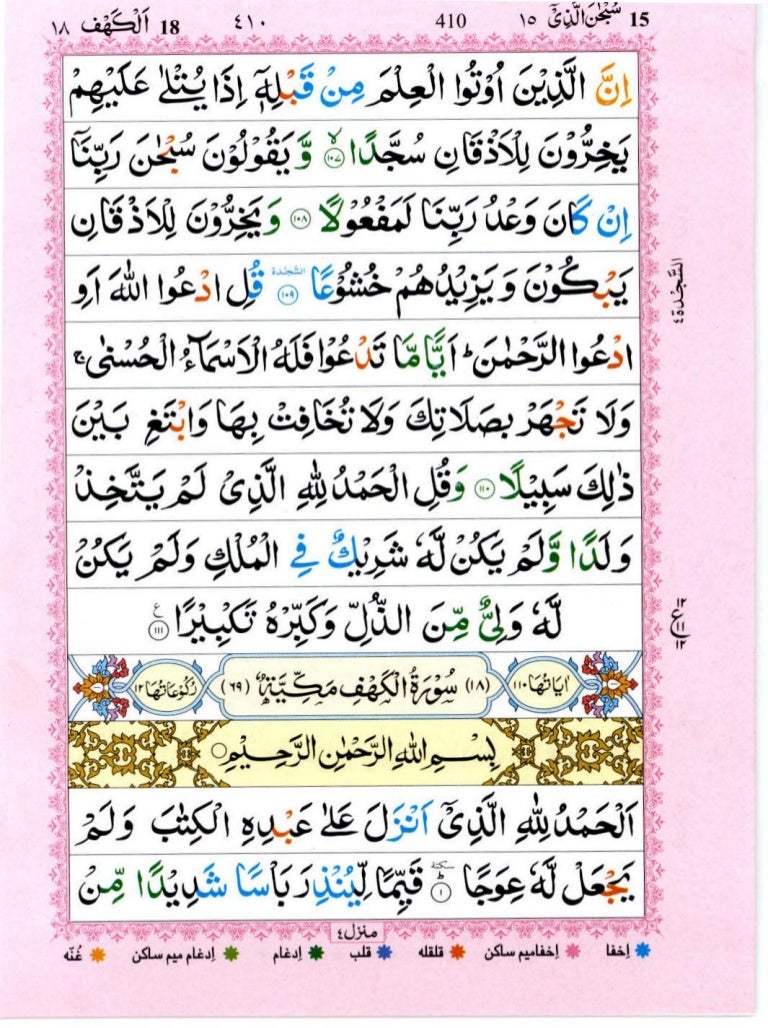 15 سُبْحٰنَ الَّذِیْۤ ١٥ 410 ٤١٠ 18 اَلْكَهْف ١٨
اِنَّ الَّذِیْنَ اُوْتُوا الْعِلْمَ مِنْ قَبْلِهٖۤ اِذَا یُتْلٰى عَلَیْهِمْ
یَخِرُّوْنَ لِلْاَذْقَانِ سُجَّدًا ۙ‏﴿۱۰۷﴾ وَّ یَقُوْلُوْنَ سُبْحٰنَ رَبِّنَاۤ
اِنْ كَانَ وَعْدُ رَبِّنَا لَمَفْعُوْلًا ﴿۱۰۸﴾ وَ یَخِرُّوْنَ لِلْاَذْقَانِ
یَبْكُوْنَ وَ یَزِیْدُهُمْ خُشُوْعًا ﴿۱۰۹﴾ السَّجْدَة قُلِ ادْعُوا اللّٰهَ اَوِ
ادْعُوا الرَّحْمٰنَ ؕ اَیًّا مَّا تَدْعُوْا فَلَهُ الْاَسْمَآءُ الْحُسْنٰى ۚ
وَلَا تَجْهَرْ بِصَلَاتِكَ وَلَا تُخَافِتْ بِهَا وَابْتَغِ بَیْنَ
ذٰلِكَ سَبِیْلًا ﴿۱۱۰﴾ وَقُلِ الْحَمْدُ لِلّٰهِ الَّذِیْ لَمْ یَتَّخِذْ
وَلَدًا وَّلَمْ یَكُنْ لَّهٗ شَرِیْكٌ فِی الْمُلْكِ وَلَمْ یَكُنْ
لَّهٗ وَلِیٌّ مِّنَ الذُّلِّ وَكَبِّرْهُ تَكْبِیْرًا ﴿۱۱۱﴾ ع
السَّجْدَة ٤
ع ١٢ ١١ ١٢
اٰیَاتُهَا ١١٠ (١٨) سُوْرَةُ الْكَهْفِ مَكِّیَّةٌ (٦٩) رُكُوْعَاتُهَا ١٢
بِسْمِ اللّٰهِ الرَّحْمٰنِ الرَّحِیْمِ
اَلْحَمْدُ لِلّٰهِ الَّذِیْۤ اَنْزَلَ عَلٰى عَبْدِهِ الْكِتٰبَ وَلَمْ
یَجْعَلْ لَّهٗ عِوَجًا ؕ ﴿۱﴾ سكتة قَیِّمًا لِّیُنْذِرَ بَاْسًا شَدِیْدًا مِّنْ
منزل ٤
اِخفا اِخفامیم ساکن قلقله قلب اِدغام اِدغام میم ساکن غُنّه